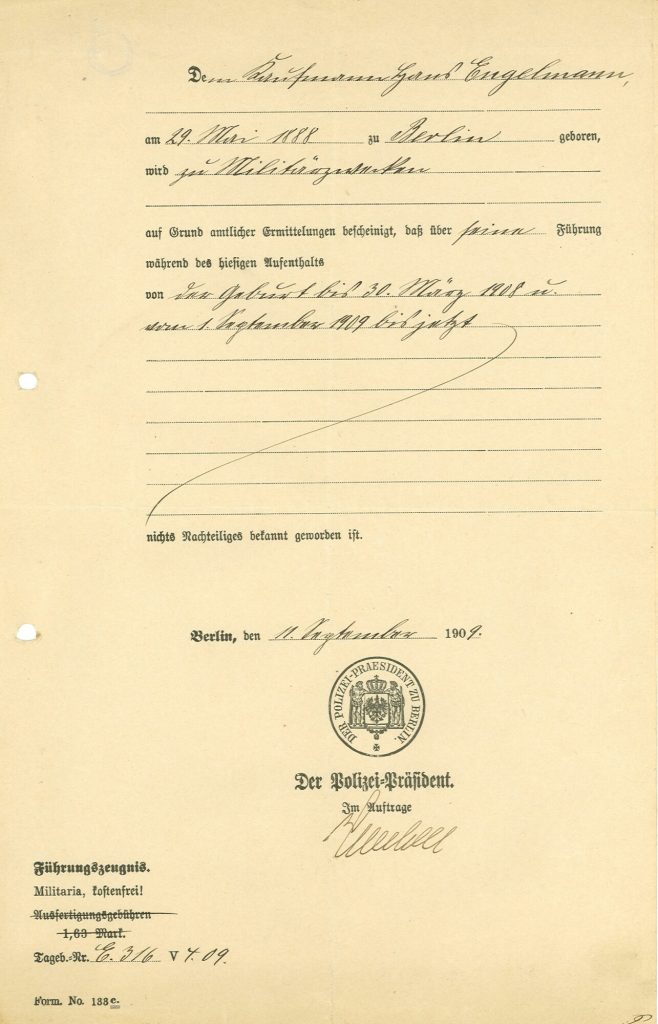 Dem Kaufmann Hans Engelmann,
am 29. Mai 1888 zu Berlin geboren,
wird zu Militärzwecken
auf Grund amtlicher Ermittelungen bescheinigt, daß über seine Führung
während des hiesigen Aufenthalts
von der Geburt bis 30. März 1908 u.
vom 1. September 1909 bis jetzt
nichts Nachteiliges bekannt geworden ist.
Berlin, den 11. September 1909.
DER POLIZEI-PRAESIDENT ZU BERLIN.
Der Polizei-Präsident.
Im Auftrage
Führungszeugnis.
Militaria, kostenfrei!
Ausfertigungsgebühren
1,63 Mark.
Tageb.-Nr. E. 316 V 4. 09.
Form. No. 133e.